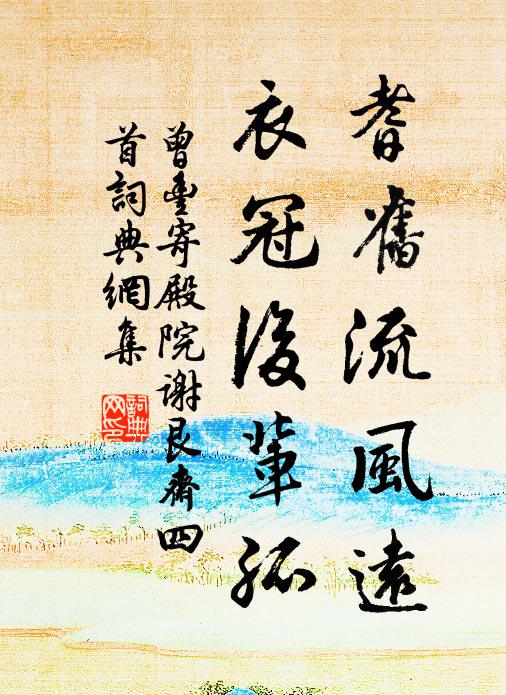 耆舊流風遠
衣冠後輩孤
曾豐寄殿院謝艮齋四
首詞典網集
詞典網印